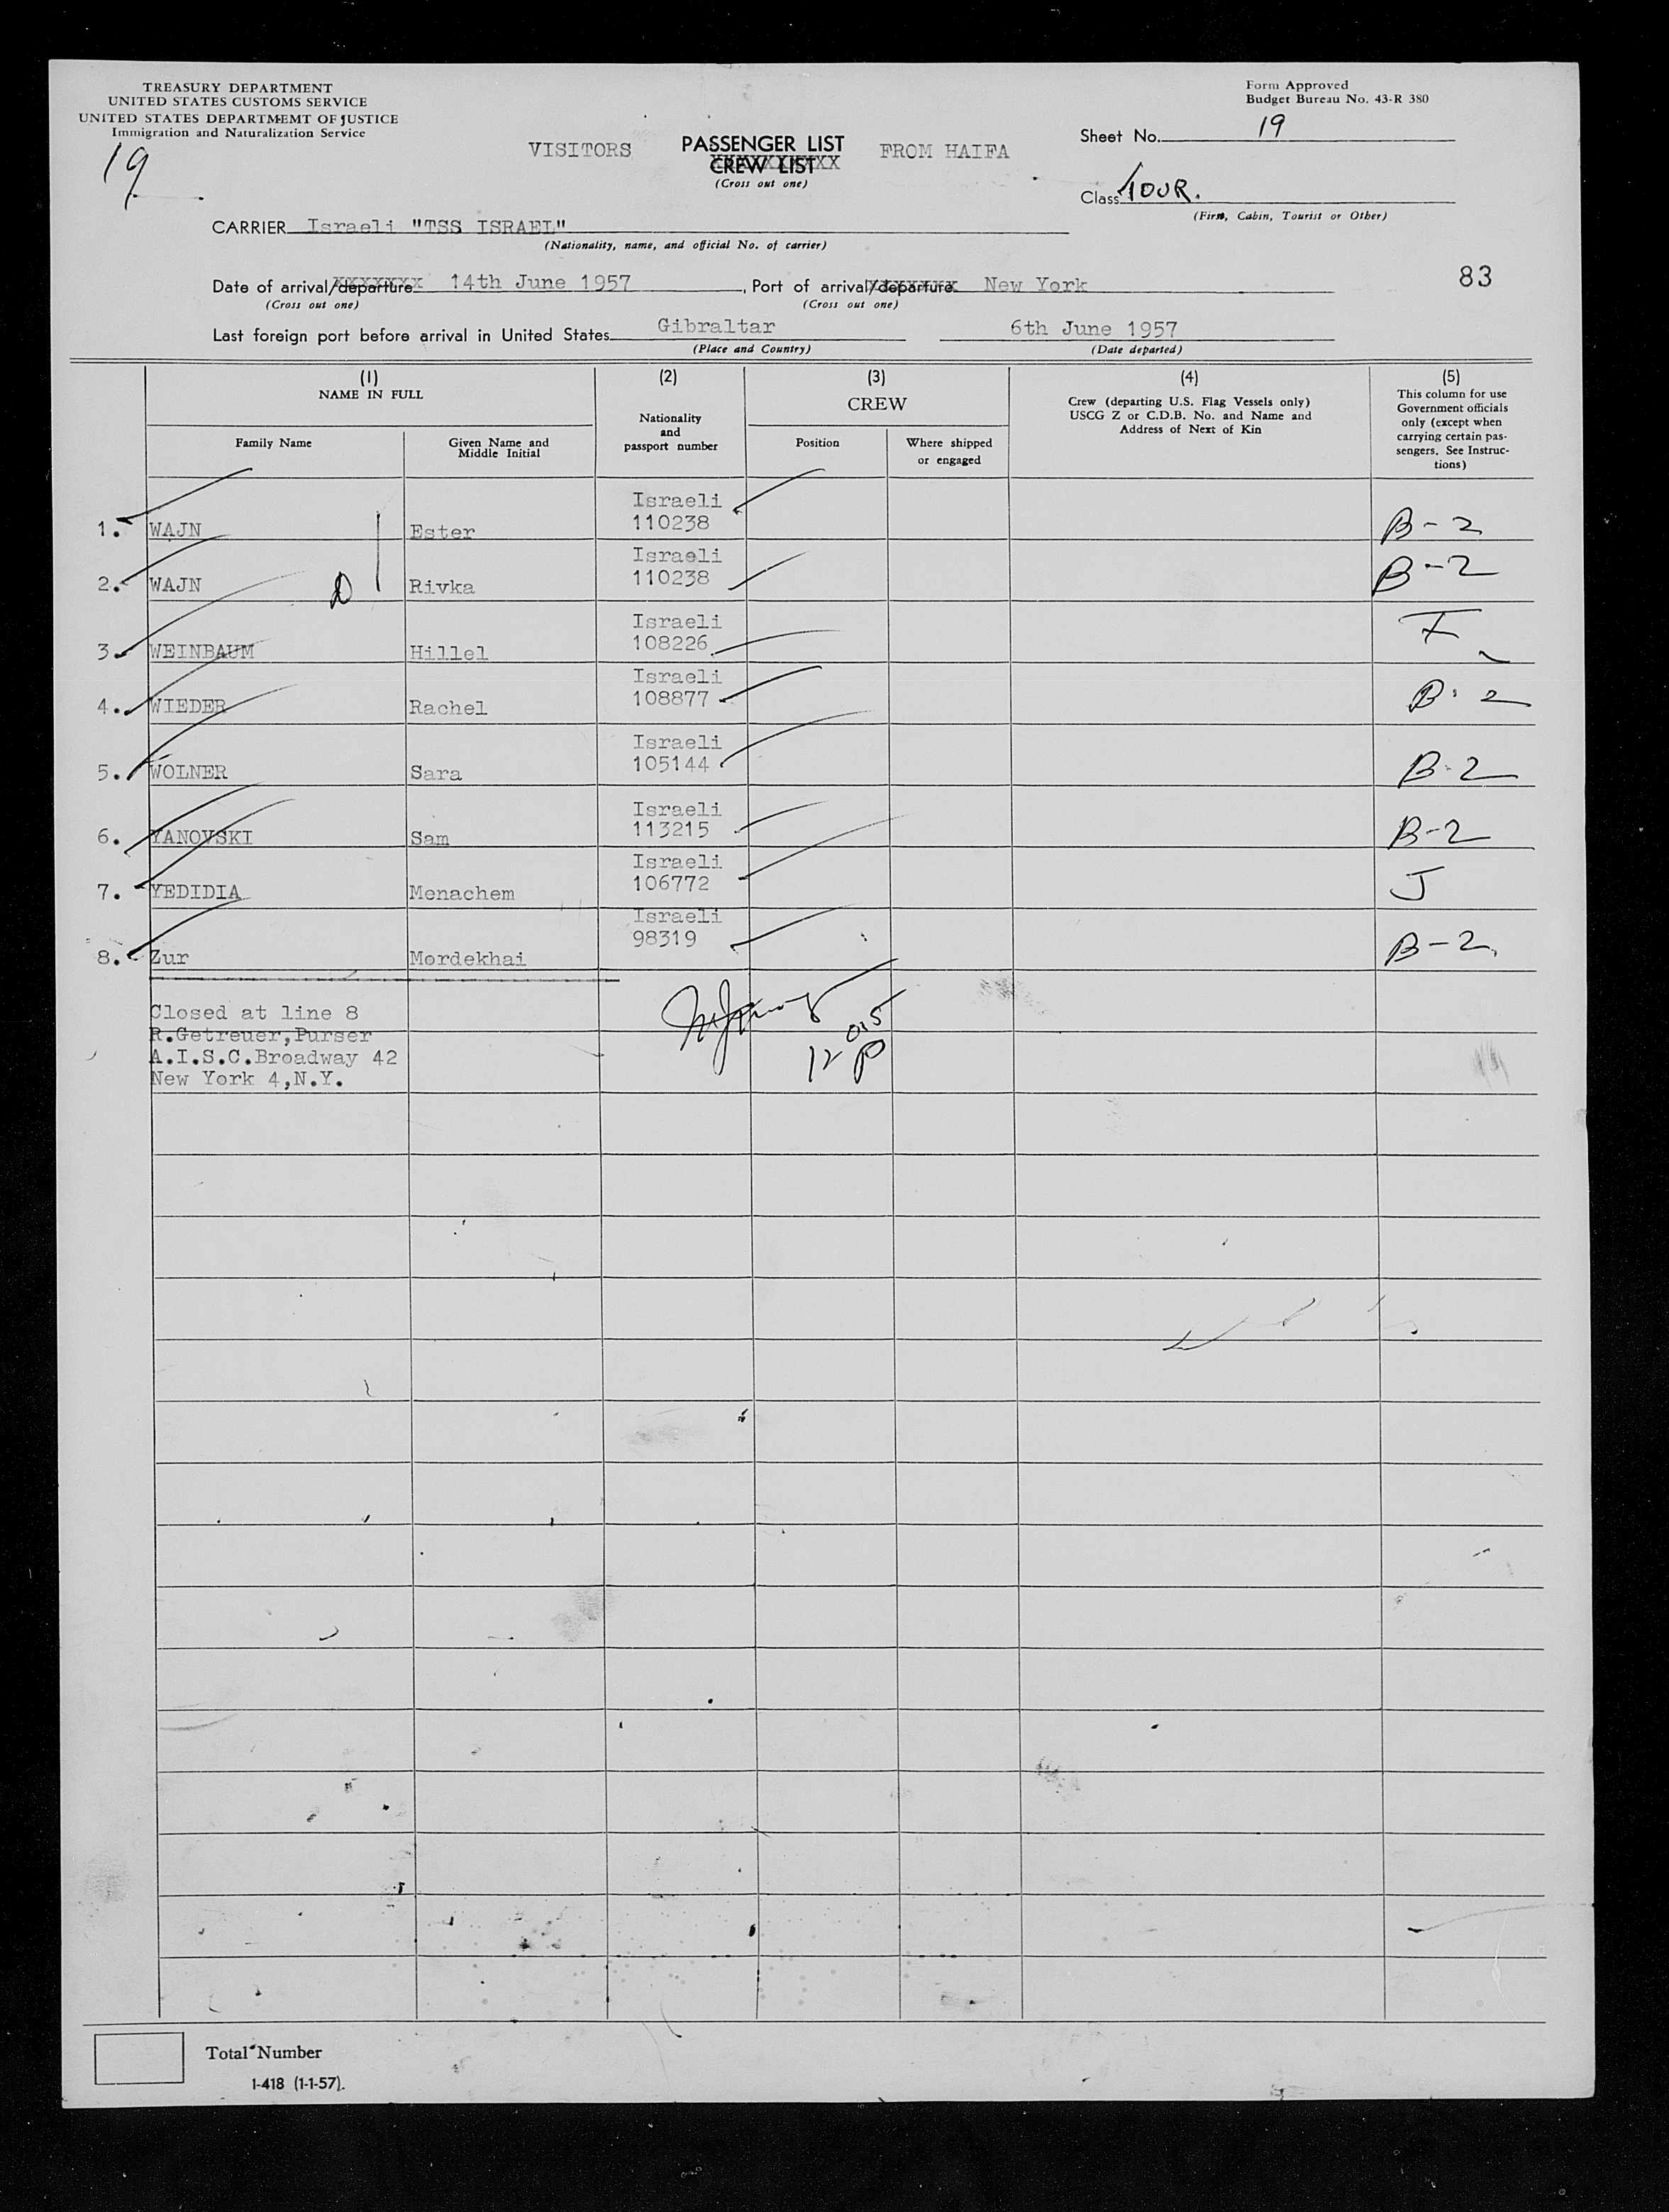 TREASURY DEPARTMENT
UNITED STATES CUSTOMS SERVICE
UNITED STATES DEPARTMEMT OF JUSTICE
Immigration and Naturalization Service
19
Form Approved
Budget Bureau No. 43-R 380
Sheet No. 19
VISITORS PASSENGER LIST FROM HAIFA
CREW LIST
(Cross out one)
Class TOUR.
(First, Cabin, Tourist or Other)
CARRIER Israeli "TSS ISRAEL"
(Nationality, name, and official No. of carrier)
Date of arrival/departure 14th June 1957, Port of arrival/departure New York
(Cross out one) (Cross out one)
83
Last foreign port before arrival in United States Gibraltar 6th June 1957
(Place and Country) (Date departed)
(1) (2) (3) (4) (5)
NAME IN FULL
Family Name
Given Name and
Middle Initial
Nationality
and
passport number
CREW
Position
Where shipped
or engaged
Crew (departing U.S. Flag Vessels only)
USCG Z or C.D.B. No. and Name and
Address of Next of Kin
This column for use
Government officials
only (except when
carrying certain pas-
sengers. See Instruc-
tions)
Israeli
1. WAJN Ester 110238 B-2
Israeli
2. WAJN D Rivka 110238 B-2
Israeli
3. WEINBAUM Hillel 108226 F
Israeli
4. WIEDER Rachel 108877 B-2
Israeli
5. WOLNER Sara 105144 B-2
Israeli
6. YANOVSKI Sam 113215 B-2
Israeli
7. YEDIDIA Menachem 106772 J
Israeli
8. Zur Mordekhai 98319 B-2
Closed at line 8
R.Getreuer,Purser
A.I.S.C.Broadway 42
New York 4,N.Y.
12 05 P
Total Number
I-418 (1-1-57).